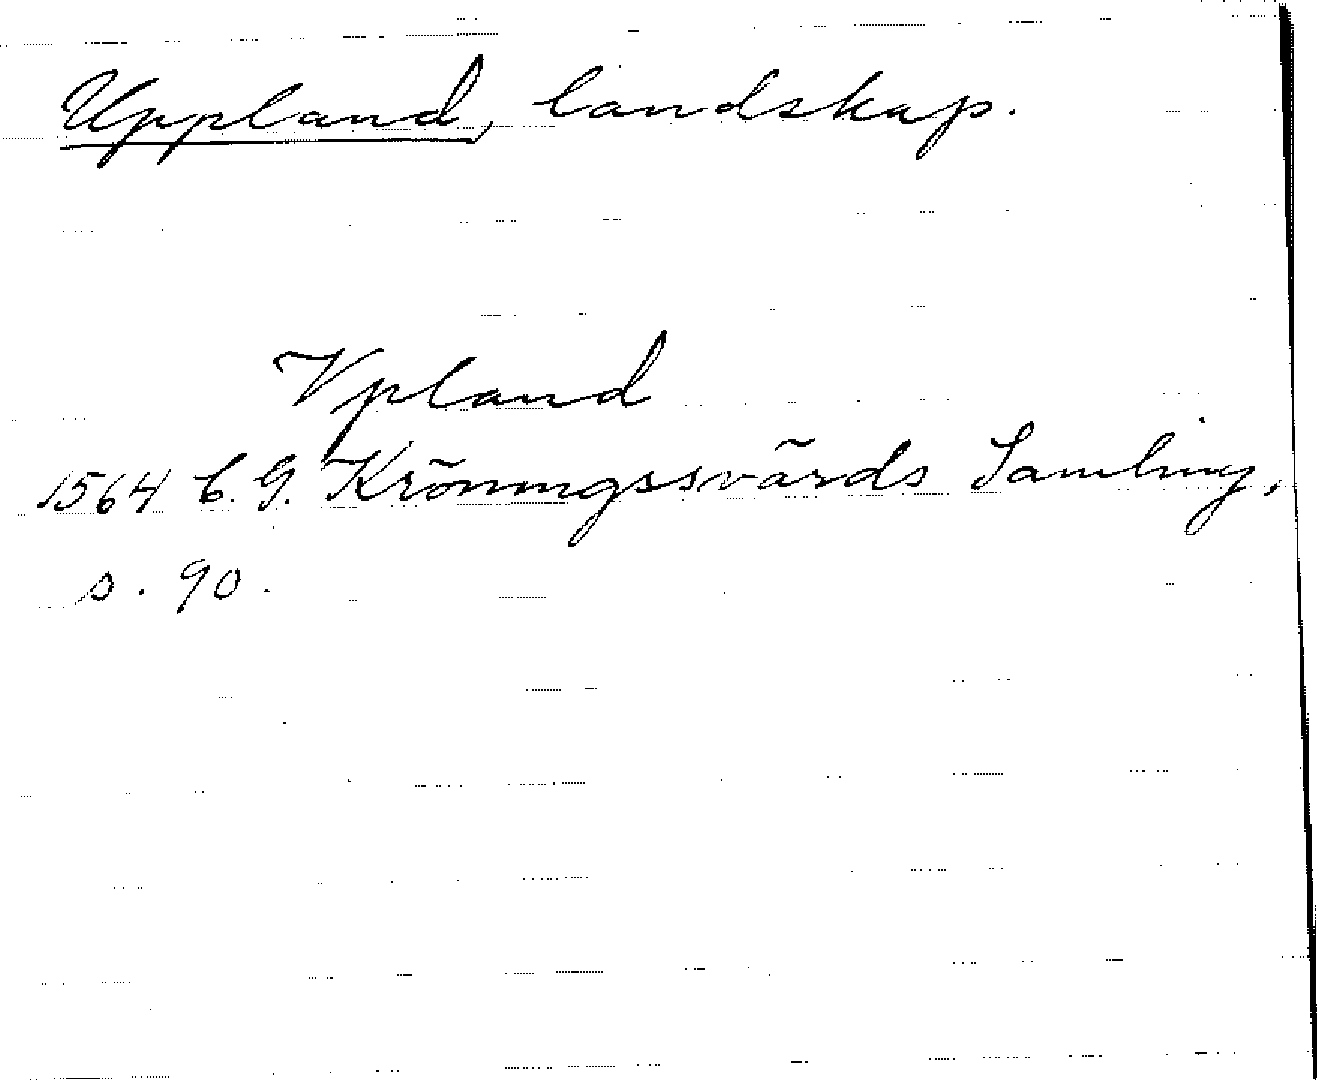 Uppland, landskap.
Vpland
1564 C. G. Kröningssvärds Samling,
s. 90.